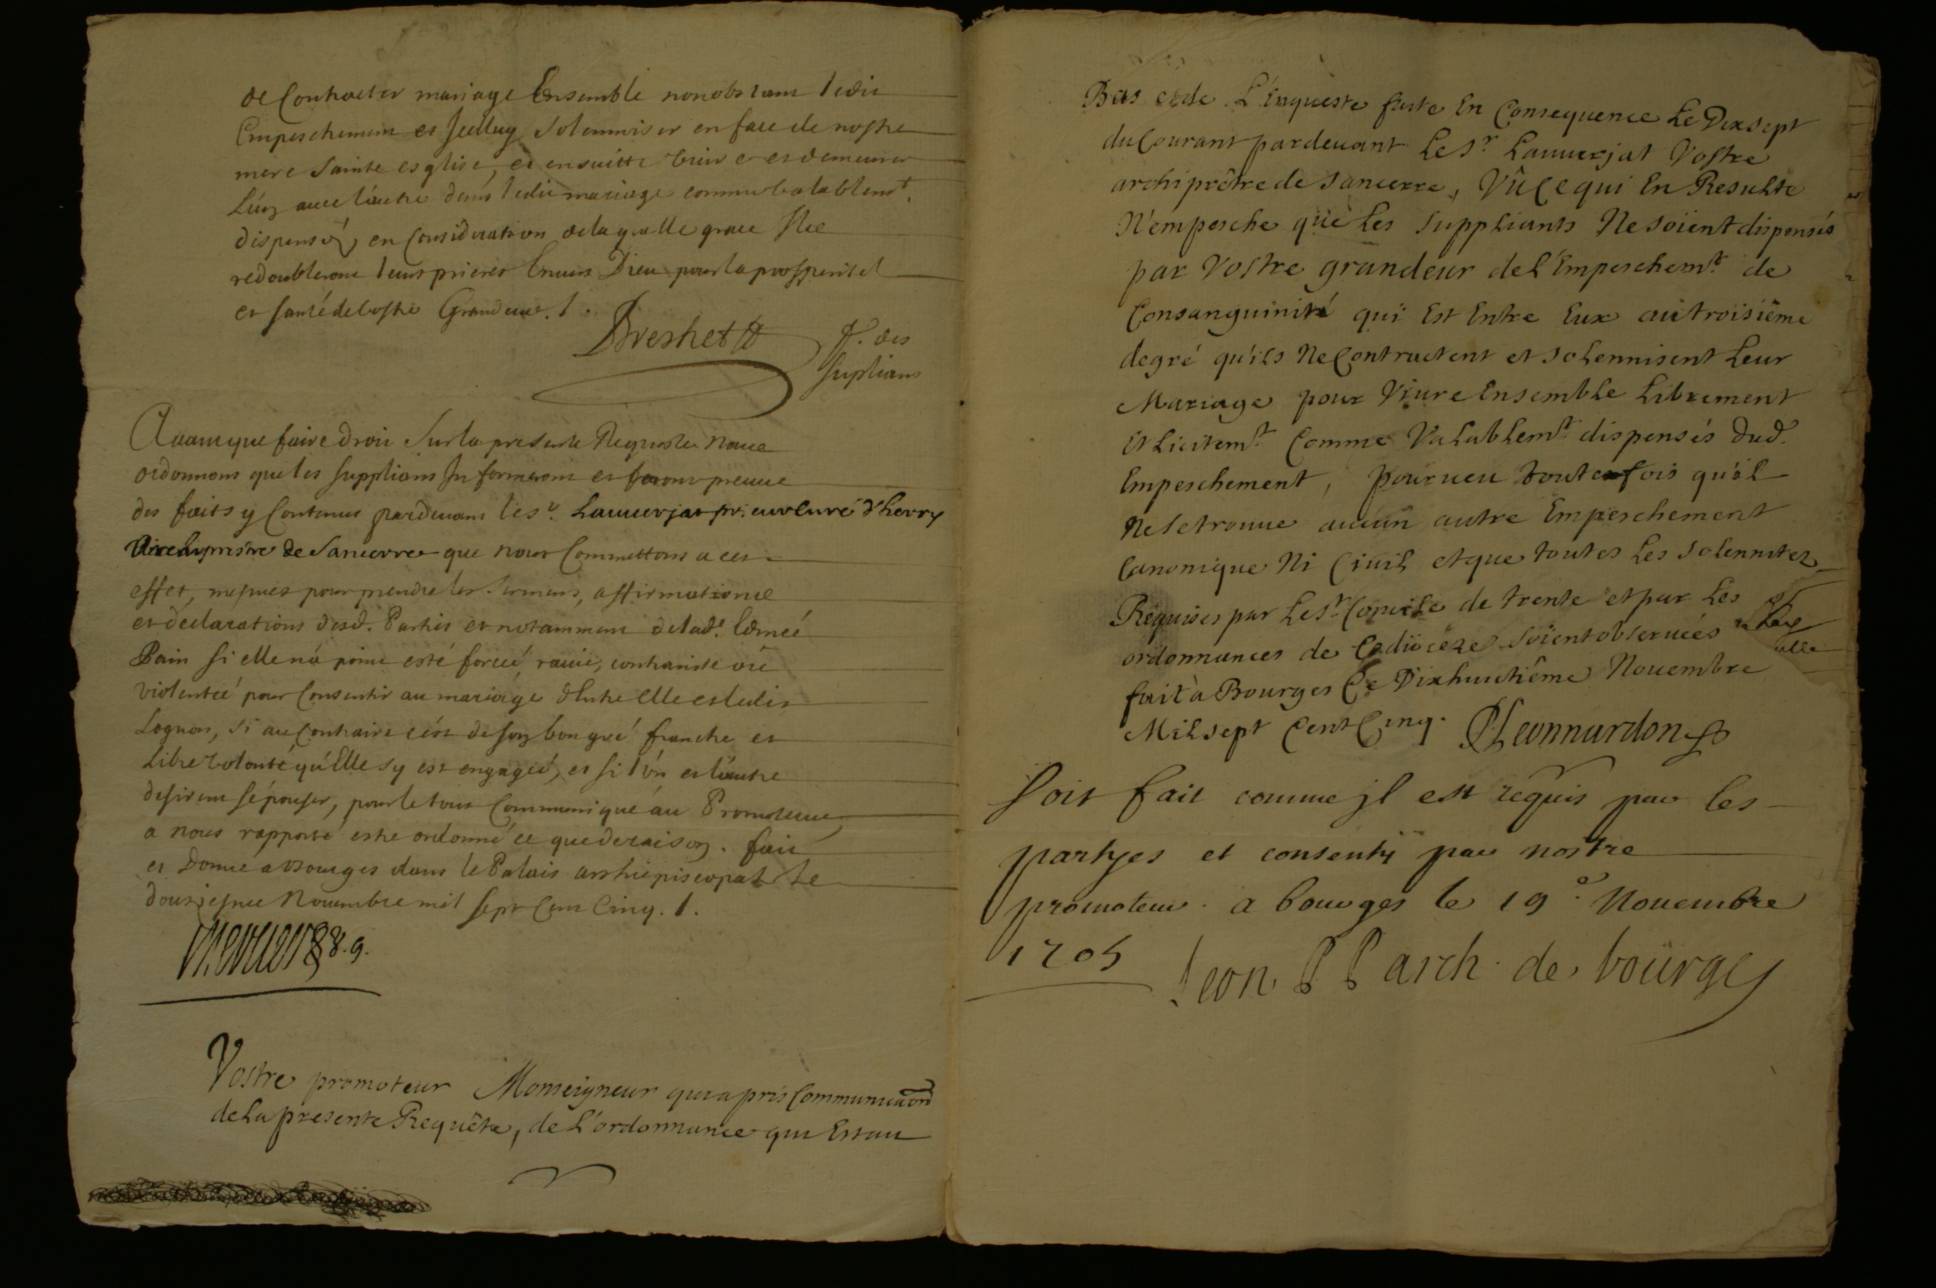 de Contracter mariage Ensemble nonobstant ledit
Empeschement et Jcelluy Solemniser en face de nostre
mere Sainte esglise, et ensuitte vivre et demeurer
L'un avec l'autre dans ledit mariage comme valablemt.
dispenséz, en Consideration de laquelle grace Ilz
redoubleront leurs prieres Envers Dieu pour la prosperité
et santé de Vostre Grandeur. /.
P. des
suplians
Auant que faire droit Sur la presente Requeste Nous
ordonnons que les Supplians Informeront et feront preuue
des faits y Contenus pardeuant le sr. Lauuerjat prieur Curé d'herry
Archiprestre de Sancerre que nous Commettons a cet
effet, mesmes pour prendre les sermens, affirmations
et declarations desd. Parties et notamment de lade. Edmeé
Pain si elle n'a point esté forceé, rauie, contrainte ou
violenteé pour Consentir au mariage d'Entre elle et ledit
Lognon, si au Contraire c'est de son bon gré franche et
Libre volonté qu'Elle s'y est engagée, et si l'un et l'autre
desirent s'épouser, pour le tout Communiqué au Promoteur
a nous rapporté estre ordonné ce que de raison. fait
et Donné a Bourges dans le Palais archiepiscopal Le
douziesme Nouembre mil sept Cent Cinq. /.
V. g.
Vostre promoteur Monseigneur qui a pris Communicaon
de La presente Requête, de L'ordonnance qui Est au
Bas et de L'Enqueste faite En Consequence Le Dix sept
du Courant pardeuant Le Sr. Lauuerjat Vostre
archiprêtre de Sancerre, Vû Ce qui En Resulte
N'empesche que Les Suppliants Ne soient dispensés
par Vostre grandeur de L'Empeschemt. de
Consanguinité qui Est Entre Eux au troisiême
degré qu'ils Ne Contractent et solennisent Leur
Mariage pour Viure Ensemble Librement
et Licitemt. Comme Valablemt. dispensés dud.
Empeschement, pourueu toutefois qu'il
Ne se trouue aucun autre Empeschement
Canonique Ni Ciuil et que toutes Les solennitez
Requises par Le St. Concile de trente et par Les
ordonnances de Ce diocèze soient obseruées
fait à Bourges Ce Dix huitiême Nouembre
Mil sept Cent Cinq. Leonnardon
Soit fait comme jl est requis par les
partyes et consenty par nostre
promoteur. a bourges le 19e. Nouembre
1705 Leon P P arch. de bourges